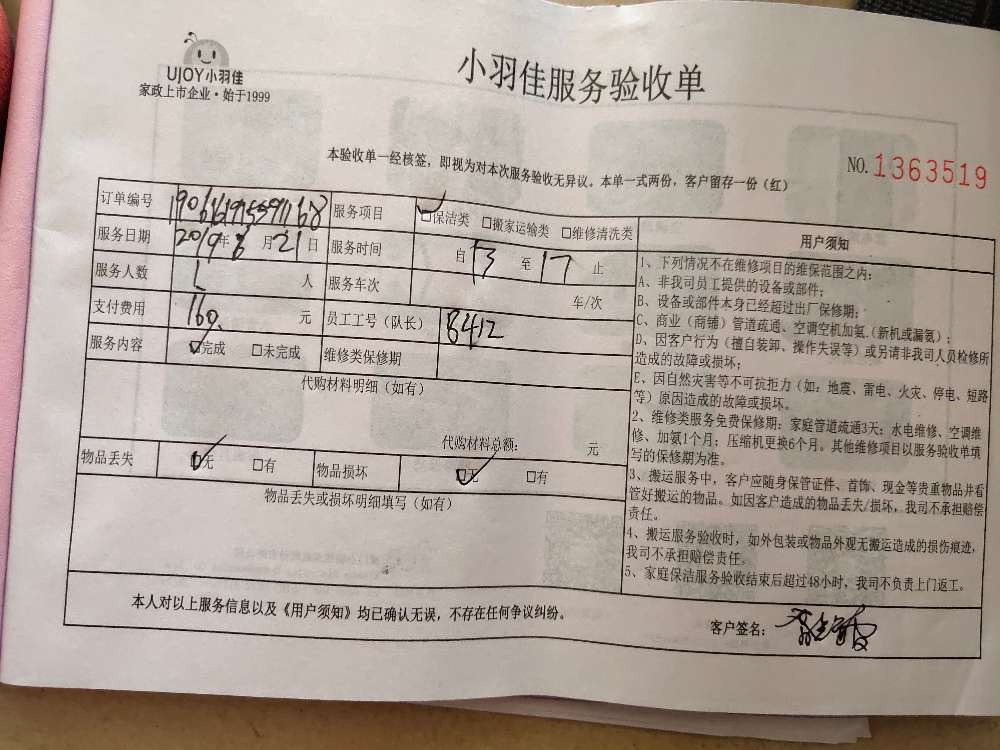 UJOY小羽佳
家政上市企业·始于1999
小羽佳服务验收单
本验收单一经核签，即视为对本次服务验收无异议。本单一式两份，客户留存一份（红）
NO.1363519
订单编号
服务项目 □保洁类 □搬家运输类 □维修清洗类
服务日期 2019年 月21日 服务时间 自13至17止
服务人数 1 人 服务车次 车/次
支付费用 160. 元 员工工号（队长） 8412
服务内容 ☑完成 □未完成 维修类保修期
代购材料明细（如有）
代购材料总额： 元
物品丢失 ☑无 □有 物品损坏 ☑无 □有
物品丢失或损坏明细填写（如有）
用户须知
1、下列情况不在维修项目的维保范围之内：
A、非我司员工提供的设备或部件；
B、设备或部件本身已经超过出厂保修期；
C、商业（商铺）管道疏通、空调空机加氨.（新机或漏氨）；
D、因客户行为（擅自装卸、操作失误等）或另请非我司人员检修所
造成的故障或损坏；
E、因自然灾害等不可抗拒力（如：地震、雷电、火灾、停电、短路
等）原因造成的故障或损坏。
2、维修类服务免费保修期：家庭管道疏通3天；水电维修、空调维
修、加氨1个月；压缩机更换6个月。其他维修项目以服务验收单填
写的保修期为准。
3、搬运服务中，客户应随身保管证件、首饰、现金等贵重物品并看
管好搬运的物品。如因客户造成的物品丢失/损坏，我司不承担赔偿
责任。
4、搬运服务验收时，如外包装或物品外观无搬运造成的损伤痕迹，
我司不承担赔偿责任。
5、家庭保洁服务验收结束后超过48小时，我司不负责上门返工。
本人对以上服务信息以及《用户须知》均已确认无误，不存在任何争议纠纷。
客户签名：